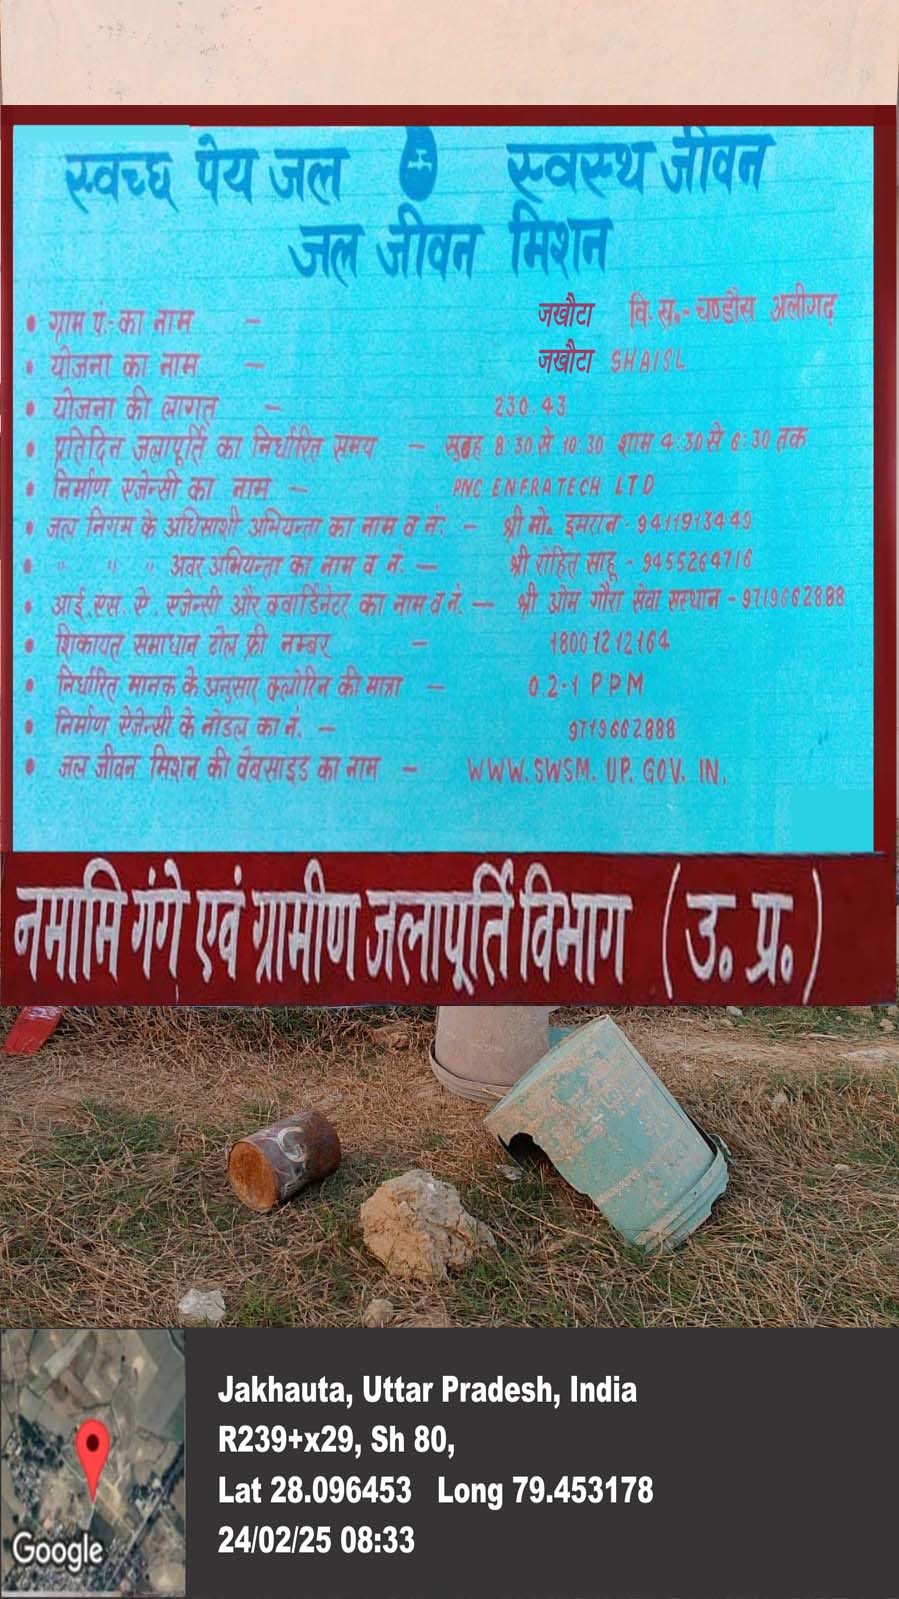 स्वच्छ पेय जल स्वस्थ जीवन
जल जीवन मिशन
• ग्राम पं.-का नाम – जखौटा वि. ख.- चण्डौस अलीगढ़
• योजना का नाम – जखौटा SHAISL
• योजना की लागत – 230.43
• प्रतिदिन जलापूर्ति का निर्धारित समय – सुबह 8:30 से 10:30 शाम 4:30 से 6:30 तक
• निर्माण एजेन्सी का नाम – PNC ENFRATECH LTD
• जल निगम के अधिसाशी अभियन्ता का नाम व नं: – श्री मो. इमरान - 9411913449
• " " " अवर अभियन्ता का नाम व नं. – श्री रोहित साहू - 9455264716
• आई. एस. ऐ. एजेन्सी और क्वार्डिनेटर का नाम व नं. – श्री ओम गौरा सेवा सस्थान - 9719662888
• शिकायत समाधान टोल फ्री नम्बर – 18001212164
• निर्धारित मानक के अनुसार क्लोरिन की मात्रा – 0.2-1 PPM
• निर्माण ऐजेन्सी के नोडल का नं. – 9719662888
• जल जीवन मिशन की वेबसाइड का नाम – WWW.SWSM.UP.GOV.IN.
नमामि गंगे एवं ग्रामीण जलापूर्ति विभाग (उ. प्र.)
Jakhauta, Uttar Pradesh, India
R239+x29, Sh 80,
Lat 28.096453 Long 79.453178
24/02/25 08:33
Google